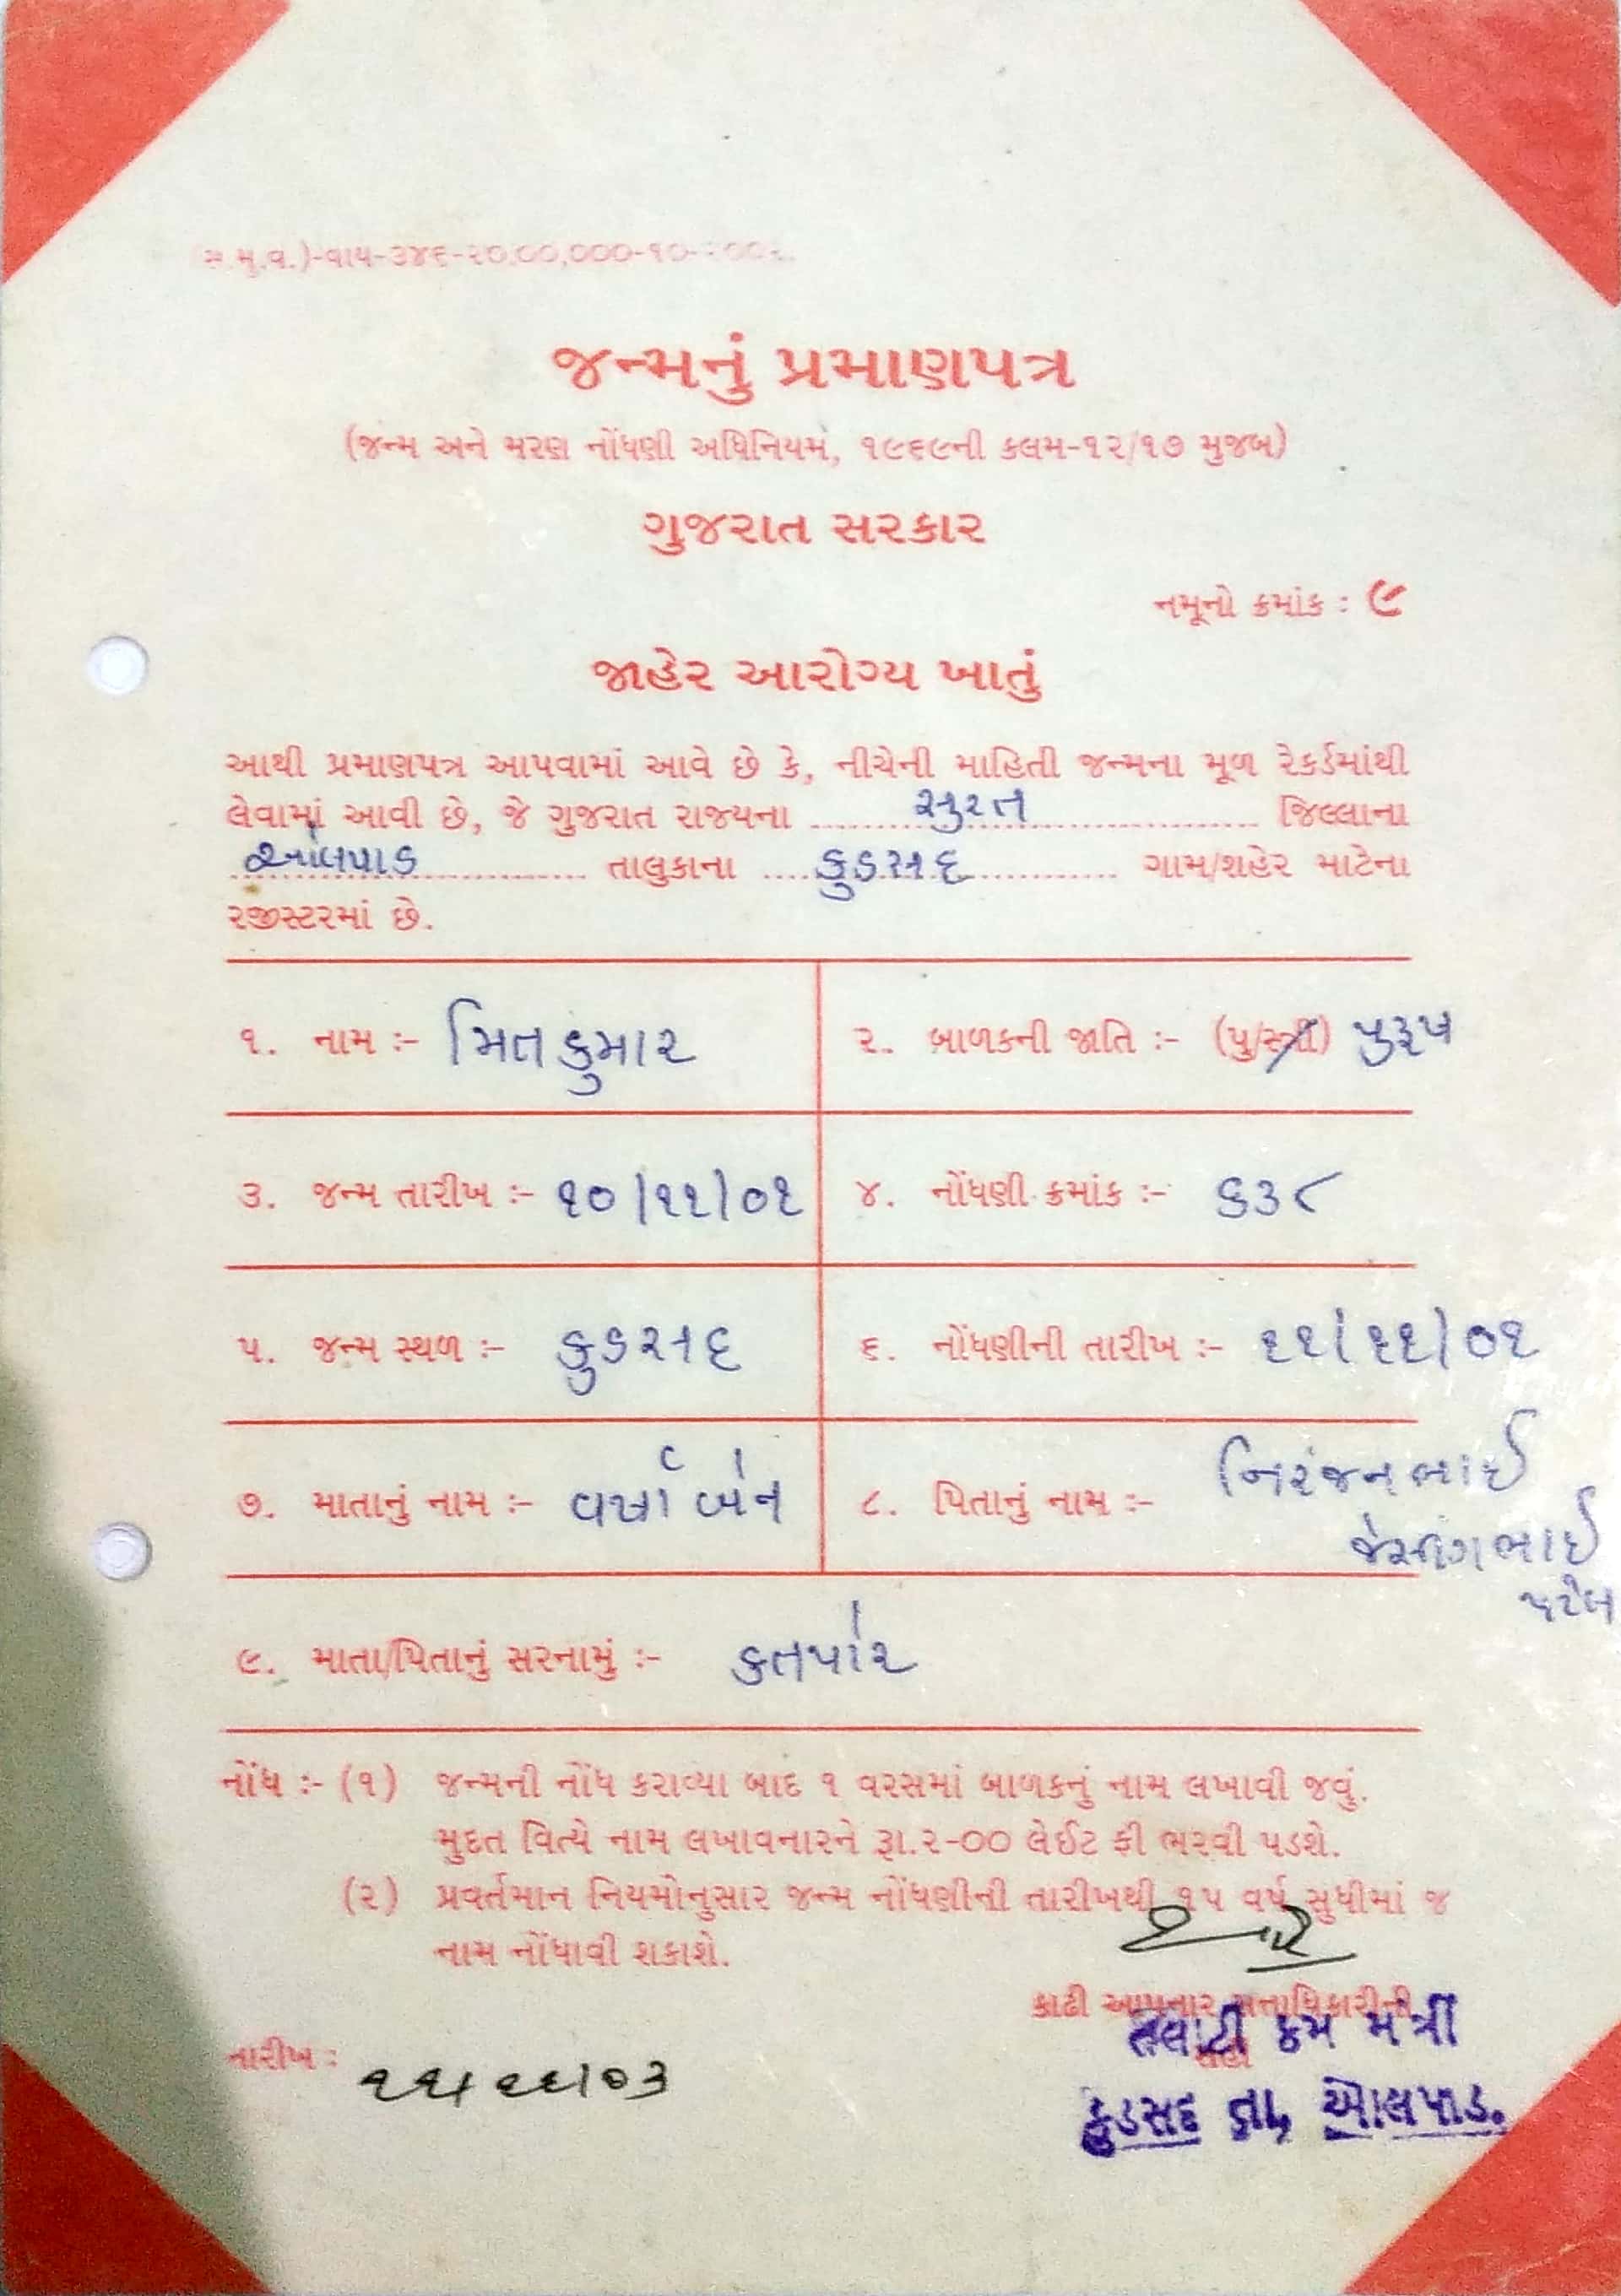 (સ.મુ.વ.)-વાય-૩૪૬-૨૦,૦૦,૦૦૦-૧૦-
જન્મનું પ્રમાણપત્ર
(જન્મ અને મરણ નોંધણી અધિનિયમ, ૧૯૬૯ની કલમ-૧૨/૧૭ મુજબ)
ગુજરાત સરકાર
નમૂનો ક્રમાંક : ૯
જાહેર આરોગ્ય ખાતું
આથી પ્રમાણપત્ર આપવામાં આવે છે કે, નીચેની માહિતી જન્મના મૂળ રેકર્ડમાંથી
લેવામાં આવી છે, જે ગુજરાત રાજ્યના સુરત જિલ્લાના
ઓલપાડ તાલુકાના કુડસદ ગામ/શહેર માટેના
રજીસ્ટરમાં છે.
૧. નામ :- મિતકુમાર ૨. બાળકની જાતિ :- (પુ/સ્ત્રી) પુરૂષ
૩. જન્મ તારીખ :- ૧૦/૧૧/૦૧ ૪. નોંધણી ક્રમાંક :- ૬૩૮
૫. જન્મ સ્થળ :- કુડસદ ૬. નોંધણીની તારીખ :- ૧૧/૧૧/૦૧
૭. માતાનું નામ :- વર્ષાબેન ૮. પિતાનું નામ :- નિરંજનભાઈ
જેસીંગભાઈ
પટેલ
૯. માતા/પિતાનું સરનામું :- કતપોર
નોંધ :- (૧) જન્મની નોંધ કરાવ્યા બાદ ૧ વરસમાં બાળકનું નામ લખાવી જવું.
મુદત વિત્યે નામ લખાવનારને રૂા.૨-૦૦ લેઈટ ફી ભરવી પડશે.
(૨) પ્રવર્તમાન નિયમોનુસાર જન્મ નોંધણીની તારીખથી ૧૫ વર્ષ સુધીમાં જ
નામ નોંધાવી શકાશે.
કાઢી આપનાર સત્તાધિકારીની
સહી
તલાટી કમ મંત્રી
તારીખ : ૧૧/૧૧/૦૩
કુડસદ તા, ઓલપાડ.